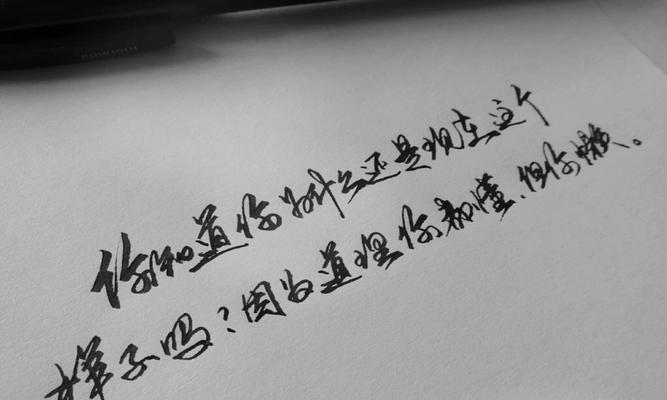 你知道你为什么还是现在这个
样子吗?因为道理你都懂、但你懒。